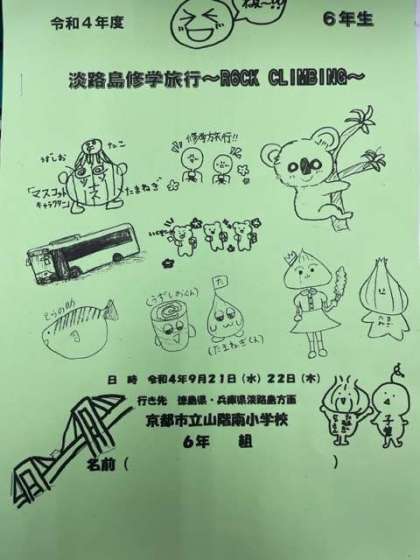 令和4年度 6年生
淡路島修学旅行～ROCK CLIMBING～
うずしお
たこ
修学旅行!!
「マスコット
キャラクター」
たまねぎ
(うずしおくん)
た
(たまねぎくん)
日 時 令和4年9月21日(水)22日(木)
行き先 徳島県・兵庫県淡路島方面
京都市立山階南小学校
6年 組
名前( )